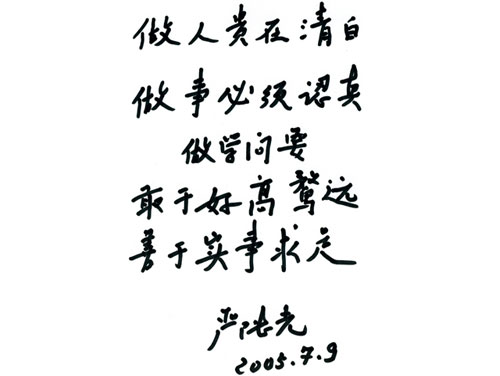 做人贵在清白
做事必须認真
做学问要
敢于好高骛远
善于实事求是
严陆光
2005.7.9